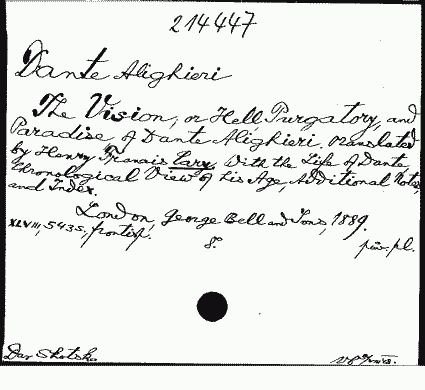 214447
Dante Alighieri
The Vision, or Hell, Purgatory, and
Paradise of Dante Alighieri. Translated
by Henry Francis Cary. With the Life of Dante,
Chronological View of his Age, Additional Notes,
and Index.
London, George Bell and Sons, 1889.
XLVIII, 543 S., frontisp. 8°.
pův. pl.
Dar Skotsk.